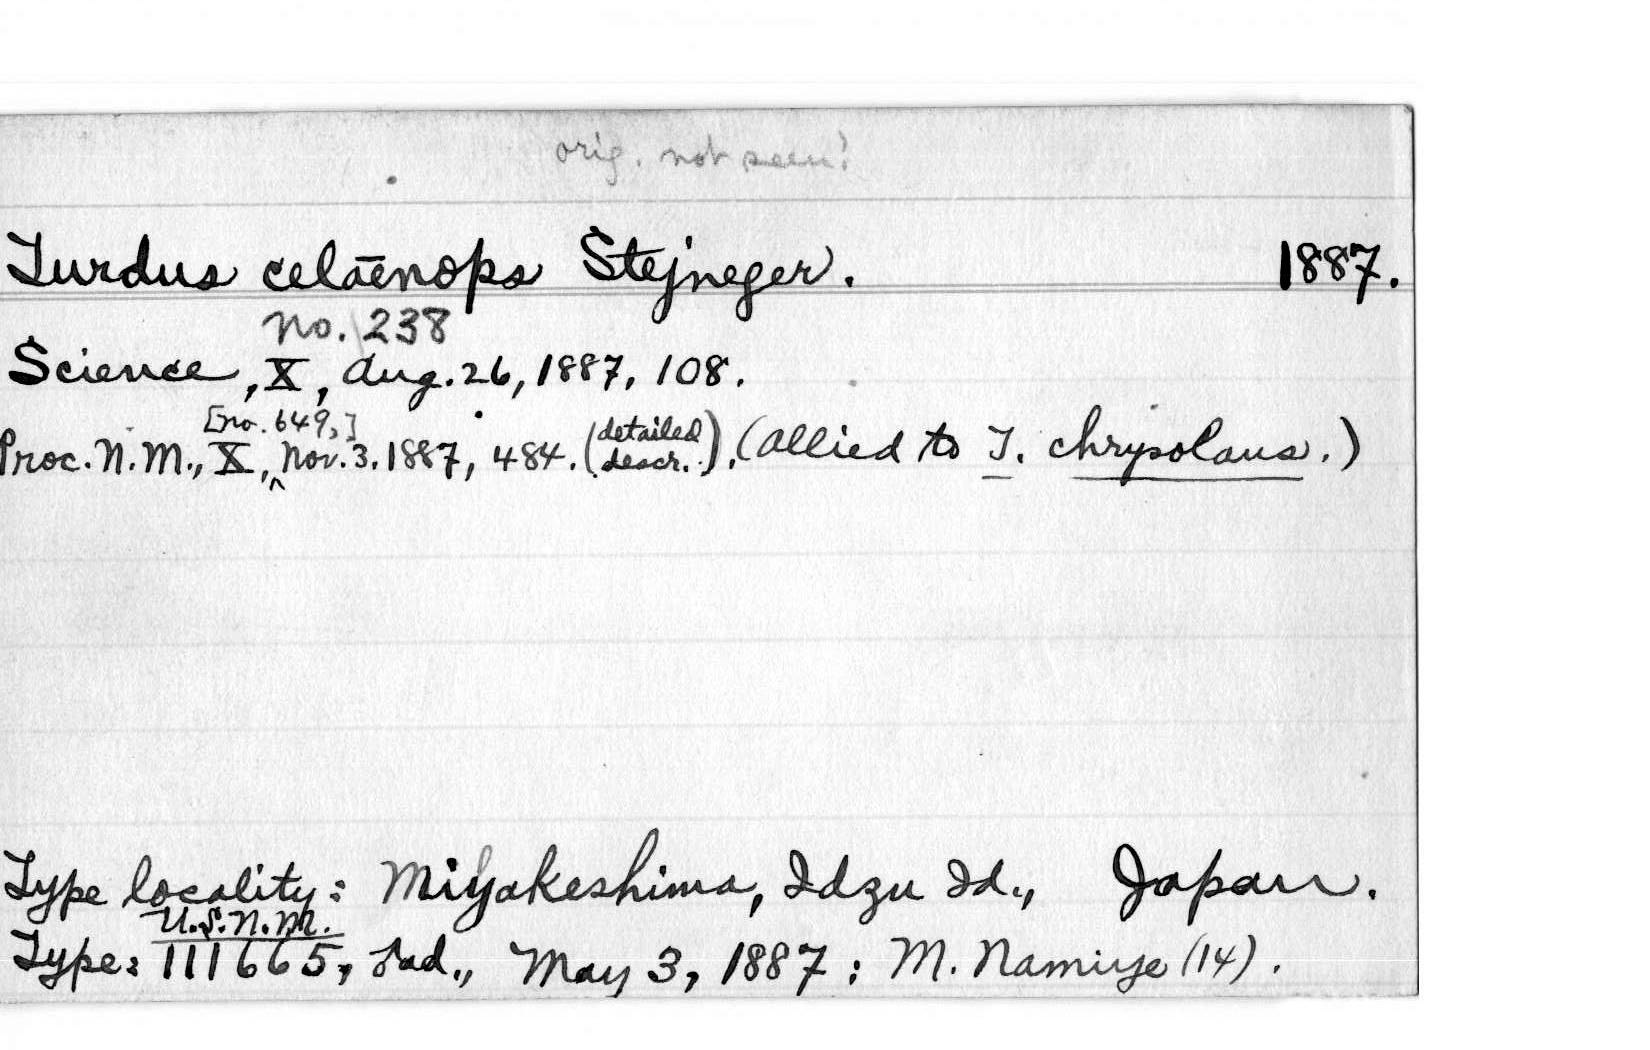 orig. not seen!
Turdus celāenops Stejneger. 1887.
no. 238
Science, X, Aug. 26, 1887, 108.
[no. 649,]
Proc. N. M., X, ^ Nov. 3. 1887, 484. (detailed descr.). (Allied to T. chrysolaus.)
Type locality: Miyakeshima, Idzu Id., Japan.
U.S.N.M.
Type: 111665, ad., May 3, 1887; M. Namiye (14).